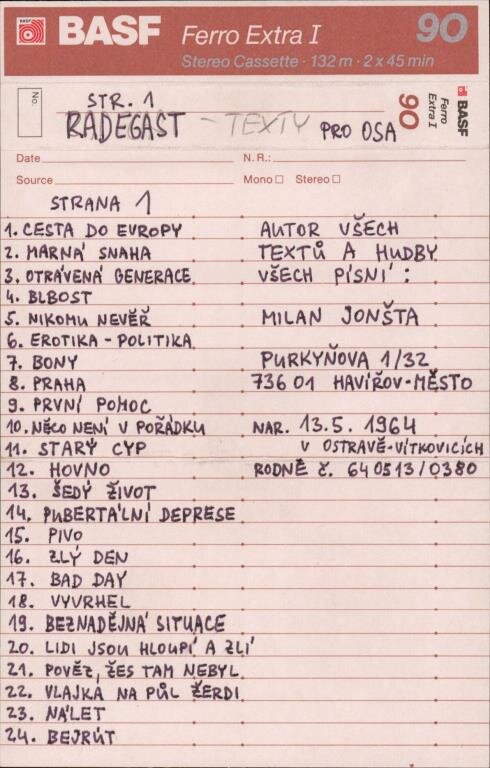 BASF Ferro Extra I 90
Stereo Cassette · 132 m · 2 x 45 min
No.
STR. 1
RADEGAST - TEXTY PRO OSA
90 Ferro Extra I BASF
Date N. R.:
Source Mono Stereo
STRANA 1
1. CESTA DO EVROPY
2. MARNÁ SNAHA
3. OTRÁVENÁ GENERACE
4. BLBOST
5. NIKOMU NEVĚŘ
6. EROTIKA - POLITIKA
7. BONY
8. PRAHA
9. PRVNÍ POMOC
10. NĚCO NENÍ V POŘÁDKU
11. STARÝ CYP
12. HOVNO
13. ŠEDÝ ŽIVOT
14. PUBERTÁLNÍ DEPRESE
15. PIVO
16. ZLÝ DEN
17. BAD DAY
18. VYVRHEL
19. BEZNADĚJNÁ SITUACE
20. LIDI JSOU HLOUPÍ A ZLÍ
21. POVĚZ, ŽES TAM NEBYL
22. VLAJKA NA PŮL ŽERDI
23. NÁLET
24. BEJRÚT
AUTOR VŠECH
TEXTŮ A HUDBY
VŠECH PÍSNÍ :
MILAN JONŠTA
PURKYŇOVA 1/32
736 01 HAVÍŘOV-MĚSTO
NAR. 13.5. 1964
V OSTRAVĚ-VÍTKOVICÍCH
RODNÉ Č. 640513/0380